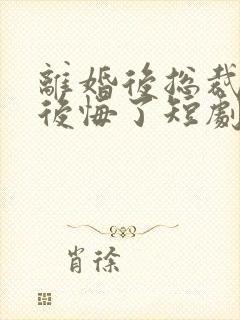 離婚後总裁
後悔了短劇
肖徐